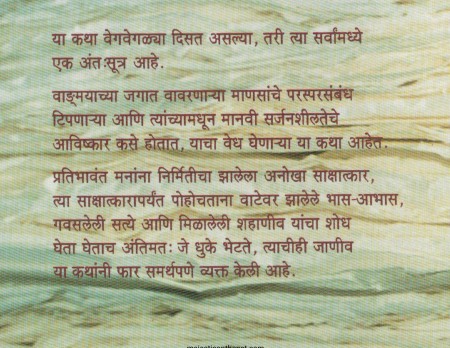 या कथा वेगवेगळ्या दिसत असल्या, तरी त्या सर्वांमध्ये
एक अंतःसूत्र आहे.
वाङ्‌मयाच्या जगात वावरणाऱ्या माणसांचे परस्परसंबंध
टिपणाऱ्या आणि त्यांच्यामधून मानवी सर्जनशीलतेचे
आविष्कार कसे होतात, याचा वेध घेणाऱ्या या कथा आहेत.
प्रतिभावंत मनांना निर्मितीचा झालेला अनोखा साक्षात्कार,
त्या साक्षात्कारापर्यंत पोहोचताना वाटेवर झालेले भास-आभास,
गवसलेली सत्ये आणि मिळालेली शहाणीव यांचा शोध
घेता घेताच अंतिमतः जे धुके भेटते, त्याचीही जाणीव
या कथांनी फार समर्थपणे व्यक्त केली आहे.